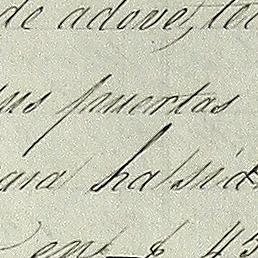 de adove, te
us puertas
ara ha sid
en $ 45